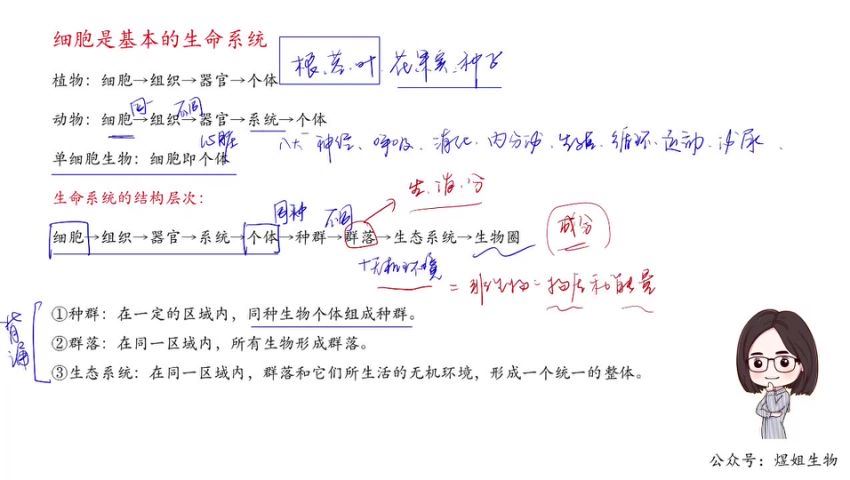 细胞是基本的生命系统
植物：细胞→组织→器官→个体 根、茎、叶、花、果实、种子
同 不同
动物：细胞→组织→器官→系统→个体
心脏 八大 神经、呼吸、消化、内分泌、生殖、循环、运动、泌尿
单细胞生物：细胞即个体
生命系统的结构层次：
生、消、分
同种 不同 成分
细胞→组织→器官→系统→个体→种群→群落→生态系统→生物圈
+无机环境 = 非生物 物质和能量
背诵
①种群：在一定的区域内，同种生物个体组成种群。
②群落：在同一区域内，所有生物形成群落。
③生态系统：在同一区域内，群落和它们所生活的无机环境，形成一个统一的整体。
公众号：煜姐生物